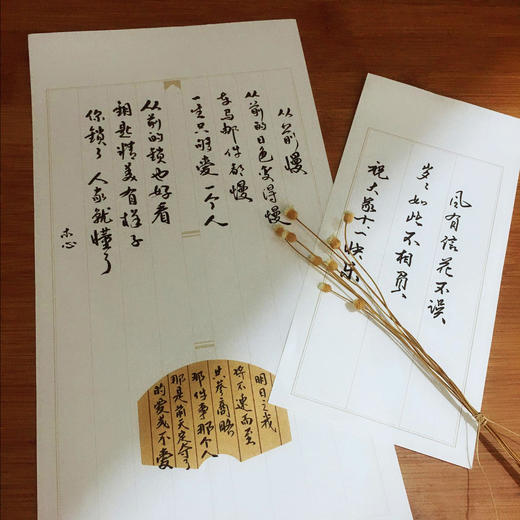 从前慢
从前的日色变得慢
车马邮件都慢
一生只够爱一个人
从前的锁也好看
钥匙精美有样子
你锁了 人家就懂了
木心
明日之我
将不速而至
共参商略
那件事那个人
那是前天定夺了
的爱或不爱
风有信花不误
岁岁如此不相负
祝大家十一快乐